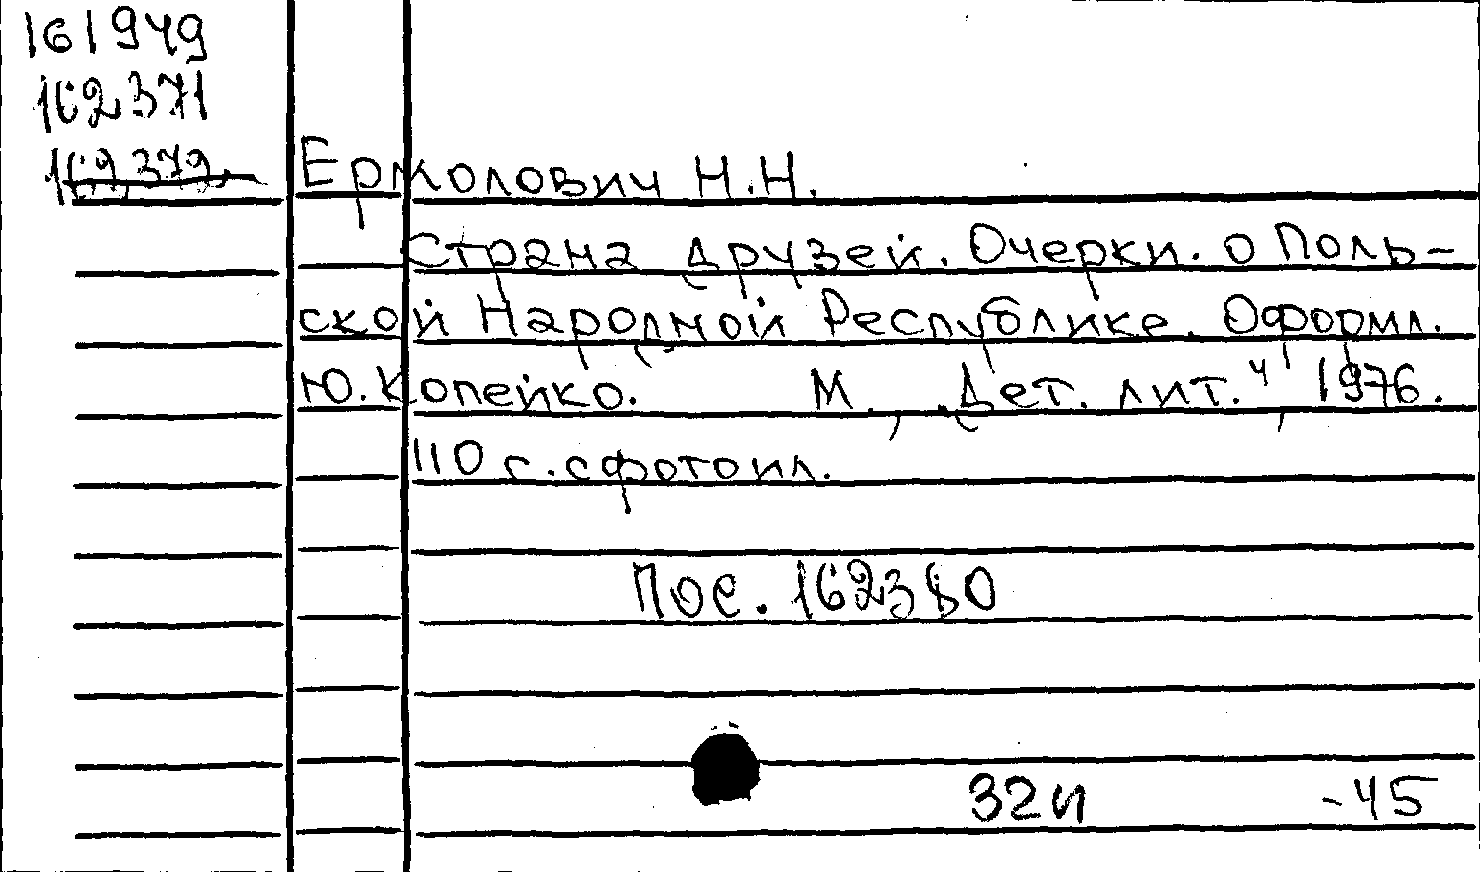 161949
162371
162372
Ермолович Н.Н.
Страна друзей. Очерки. о Поль-
ской Народной Республике. Оформл.
Ю. Копейко. М., „Дет. лит.", 1976.
110 с. с фотоил.
Пос. 162380
32и -45